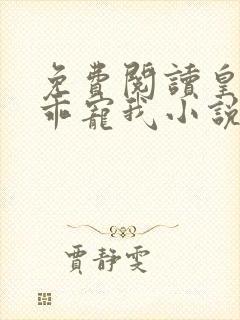 免費閱讀皇
乖寵我小說
賈靜雯